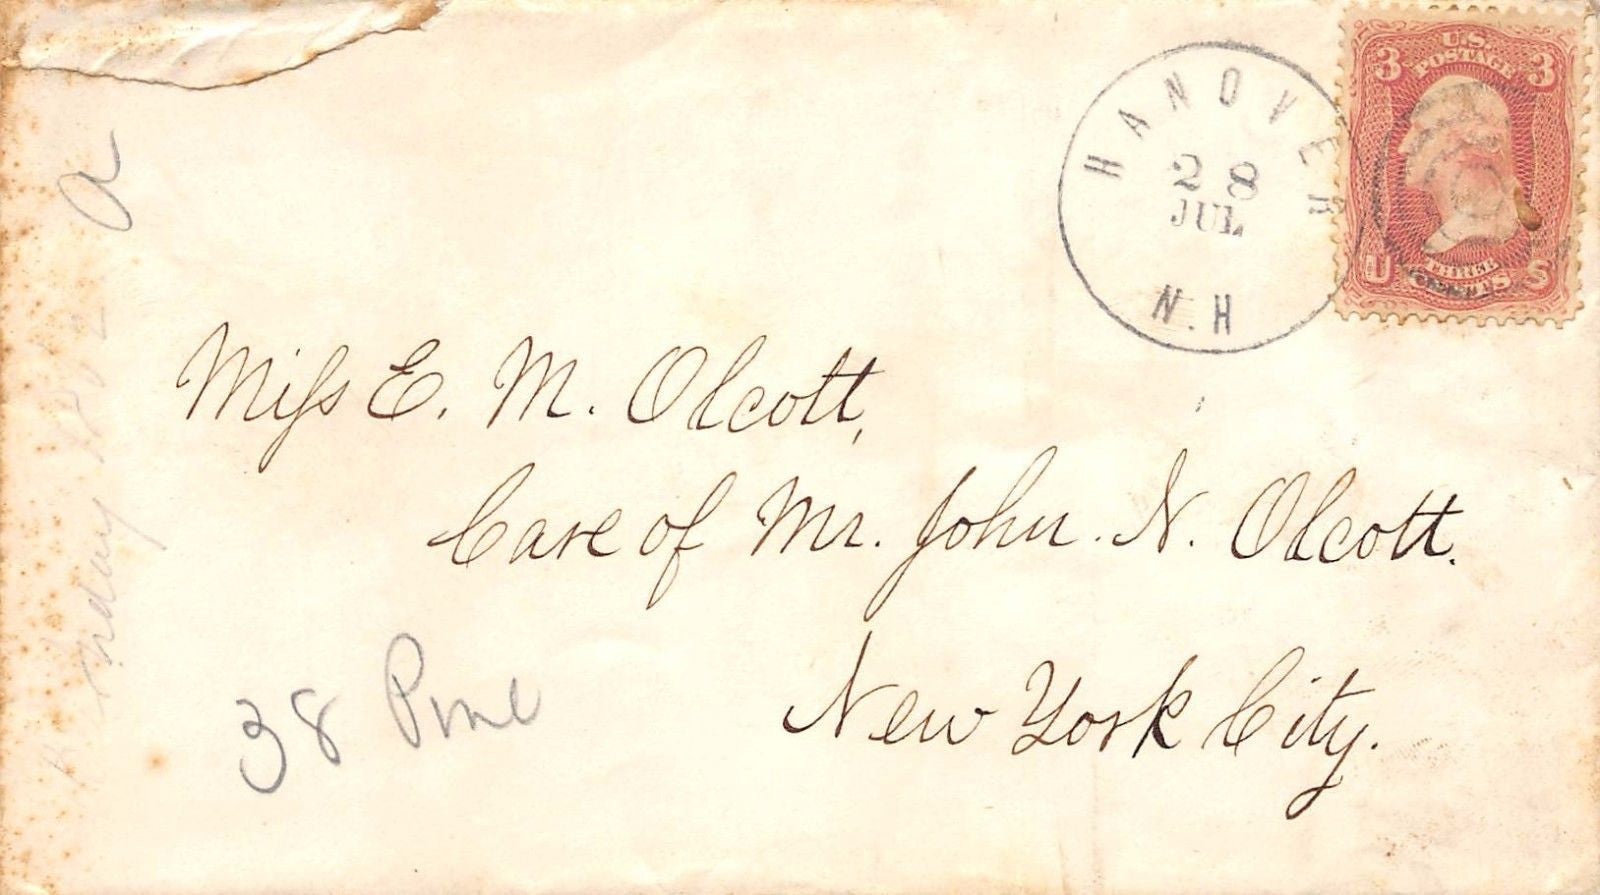 HANOVER
28
JUL
N.H
U.S.
POSTAGE
3 3
THREE
U S
Miſs E. M. Olcott,
Care of Mr. John. N. Olcott.
New York City.
38 Pine
a